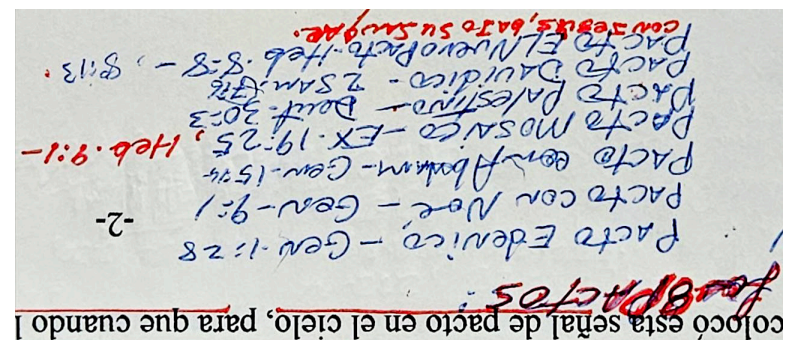 colocó esta señal de pacto en el cielo, para que cuando l
Los 8 PACTOS:
PACTO Edenico - Gen. 1:28
-2-
PACTO CON Noe, - Gen - 9:1
PACTO con Abraham - Gen - 15:4-
PACTO MOSAICO - EX. 19:25, Heb. 9:1-
PACTO PAlESTINO - Deut. 30:3
PACTO DAVIDICO - 2 SAM. 7:16
PACTO EL NUEVO PACTO - Heb. 8:8 - 8:13.
CON JESUS, BAJO SU SANGRE.